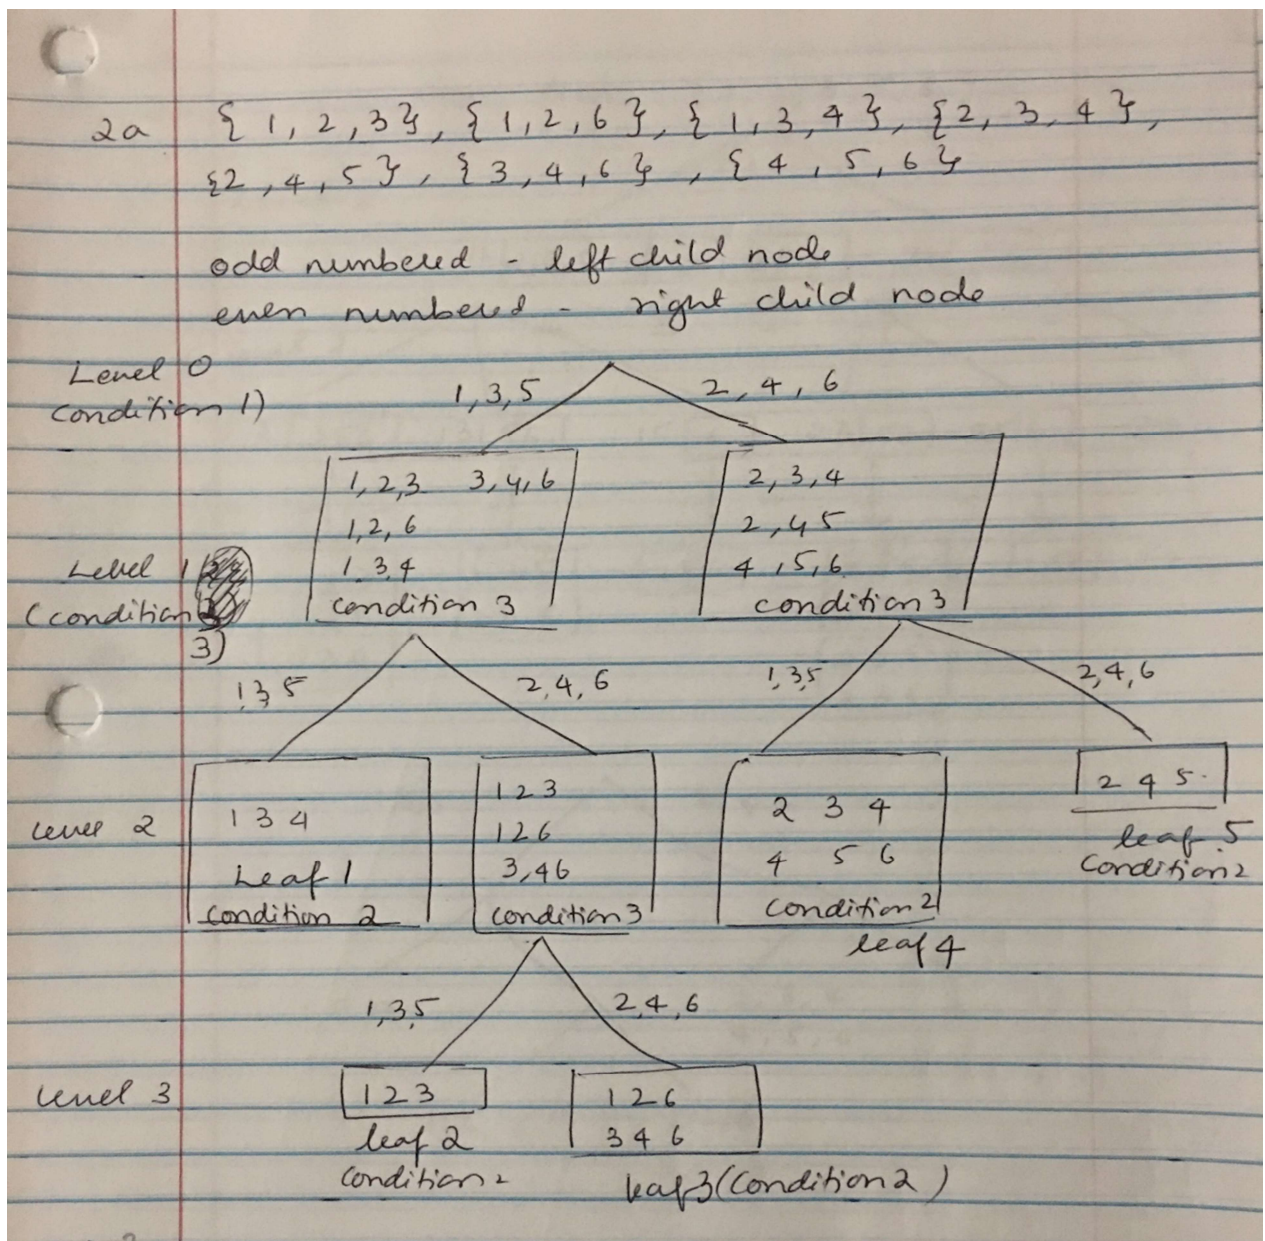 2a { 1, 2, 3 }, { 1, 2, 6 }, { 1, 3, 4 }, { 2, 3, 4 },
{ 2, 4, 5 }, { 3, 4, 6 }, { 4, 5, 6 }
odd numbered - left child node
even numbered - right child node
Level 0
condition 1)
1, 3, 5
2, 4, 6
1, 2, 3 3, 4, 6
1, 2, 6
1, 3, 4
condition 3
2, 3, 4
2, 4 5
4, 5, 6
condition 3
Level 1
(condition
3)
1, 3, 5
2, 4, 6
1, 3, 5
2, 4, 6
Level 2
1 3 4
Leaf 1
condition 2
1 2 3
1 2 6
3, 4 6
condition 3
2 3 4
4 5 6
condition 2
leaf 4
2 4 5
leaf 5
condition 2
1, 3, 5
2, 4, 6
Level 3
1 2 3
leaf 2
condition 2
1 2 6
3 4 6
leaf 3 (condition 2)